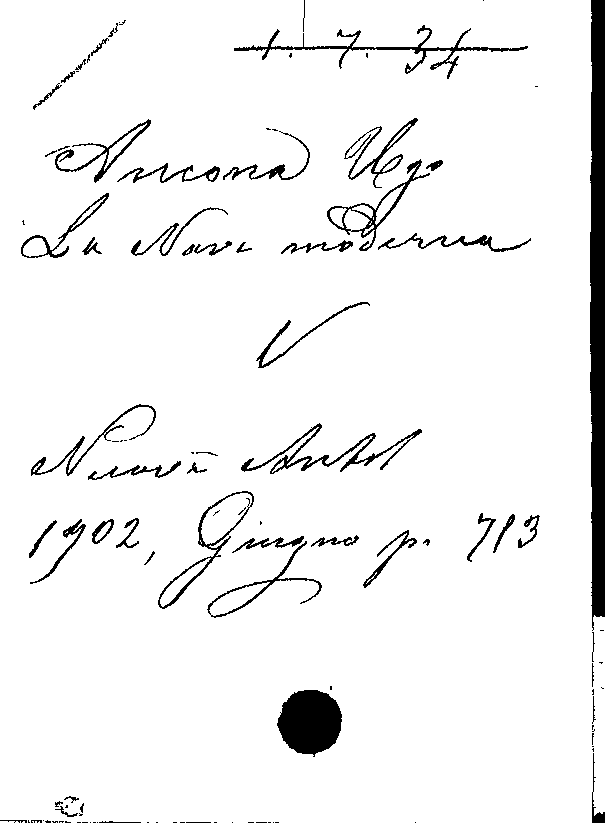 1. 7. 34
Ancona Ugo
La Nave moderna
V
Nuova Antol
1902, Giugno p. 713